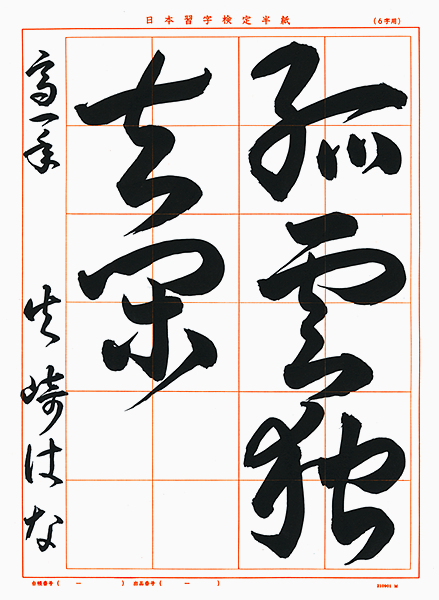 日本習字検定半紙
(6字用)
孤雲独
去閑
高一年
矢崎はな
台帳番号(　ー　)
出品番号(　ー　)